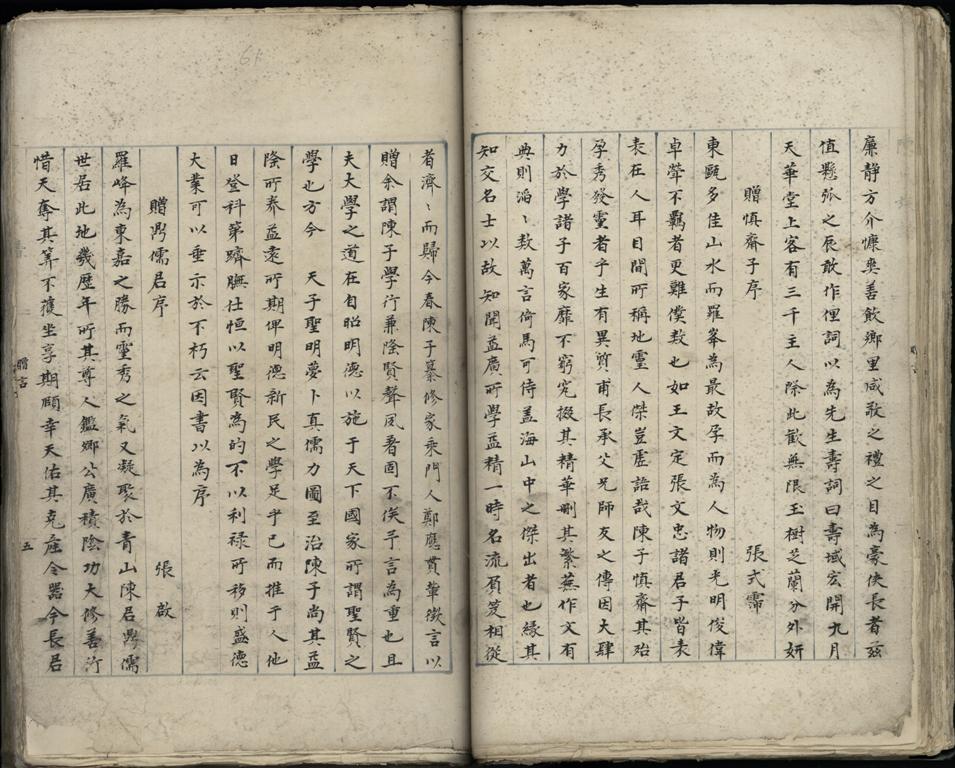 廉静方介慷爽善飲鄉里咸敬之禮之目為豪俠長者茲
值懸弧之辰敢作俚詞以為先生壽詞曰壽域宏開九月
天華堂上客有三千主人際此歡無限玉樹芝蘭分外妍
贈慎齋子序 張式霈
東甌多佳山水而羅峯為最故孕而為人物則光明俊偉
卓犖不羈者更難僕数也如王文定張文忠諸君子皆表
表在人耳目間所稱地靈人傑豈虛語哉陳子慎齋其殆
孕秀發靈者乎生有異質甫長承父兄師友之傳因大肆
力於學諸子百家靡不窮究掇其精華刪其繁蕪作文有
典則滔〻数萬言倚馬可侍盖海山中之傑出者也緣其
知交名士以故知聞益廣所學益精一時名流負笈相從
者濟〻而歸今春陳子纂修家乘門人鄭應貫輩徵言以
贈余謂陳子學行兼隆賢聲夙著固不俟予言為重也且
夫大學之道在自昭明德以施于天下國家所謂聖賢之
學也方今 天子聖明夢卜真儒力圖至治陳子尚其益
隆所养益遠所期俾明德新民之學足乎己而推于人他
日登科第躋膴仕恒以聖賢為的不以利禄所移則盛德
大業可以垂示於不朽云因書以為序
贈鼎儒君序 張啟
羅峰為東嘉之勝而靈秀之氣又凝聚於青山陳君鼎儒
世居此地幾歷年所其尊人鑑鄉公廣積陰功大修善行
惜天奪其筭不獲坐享期頤幸天佑其克產令器今長君
贈言
五
61